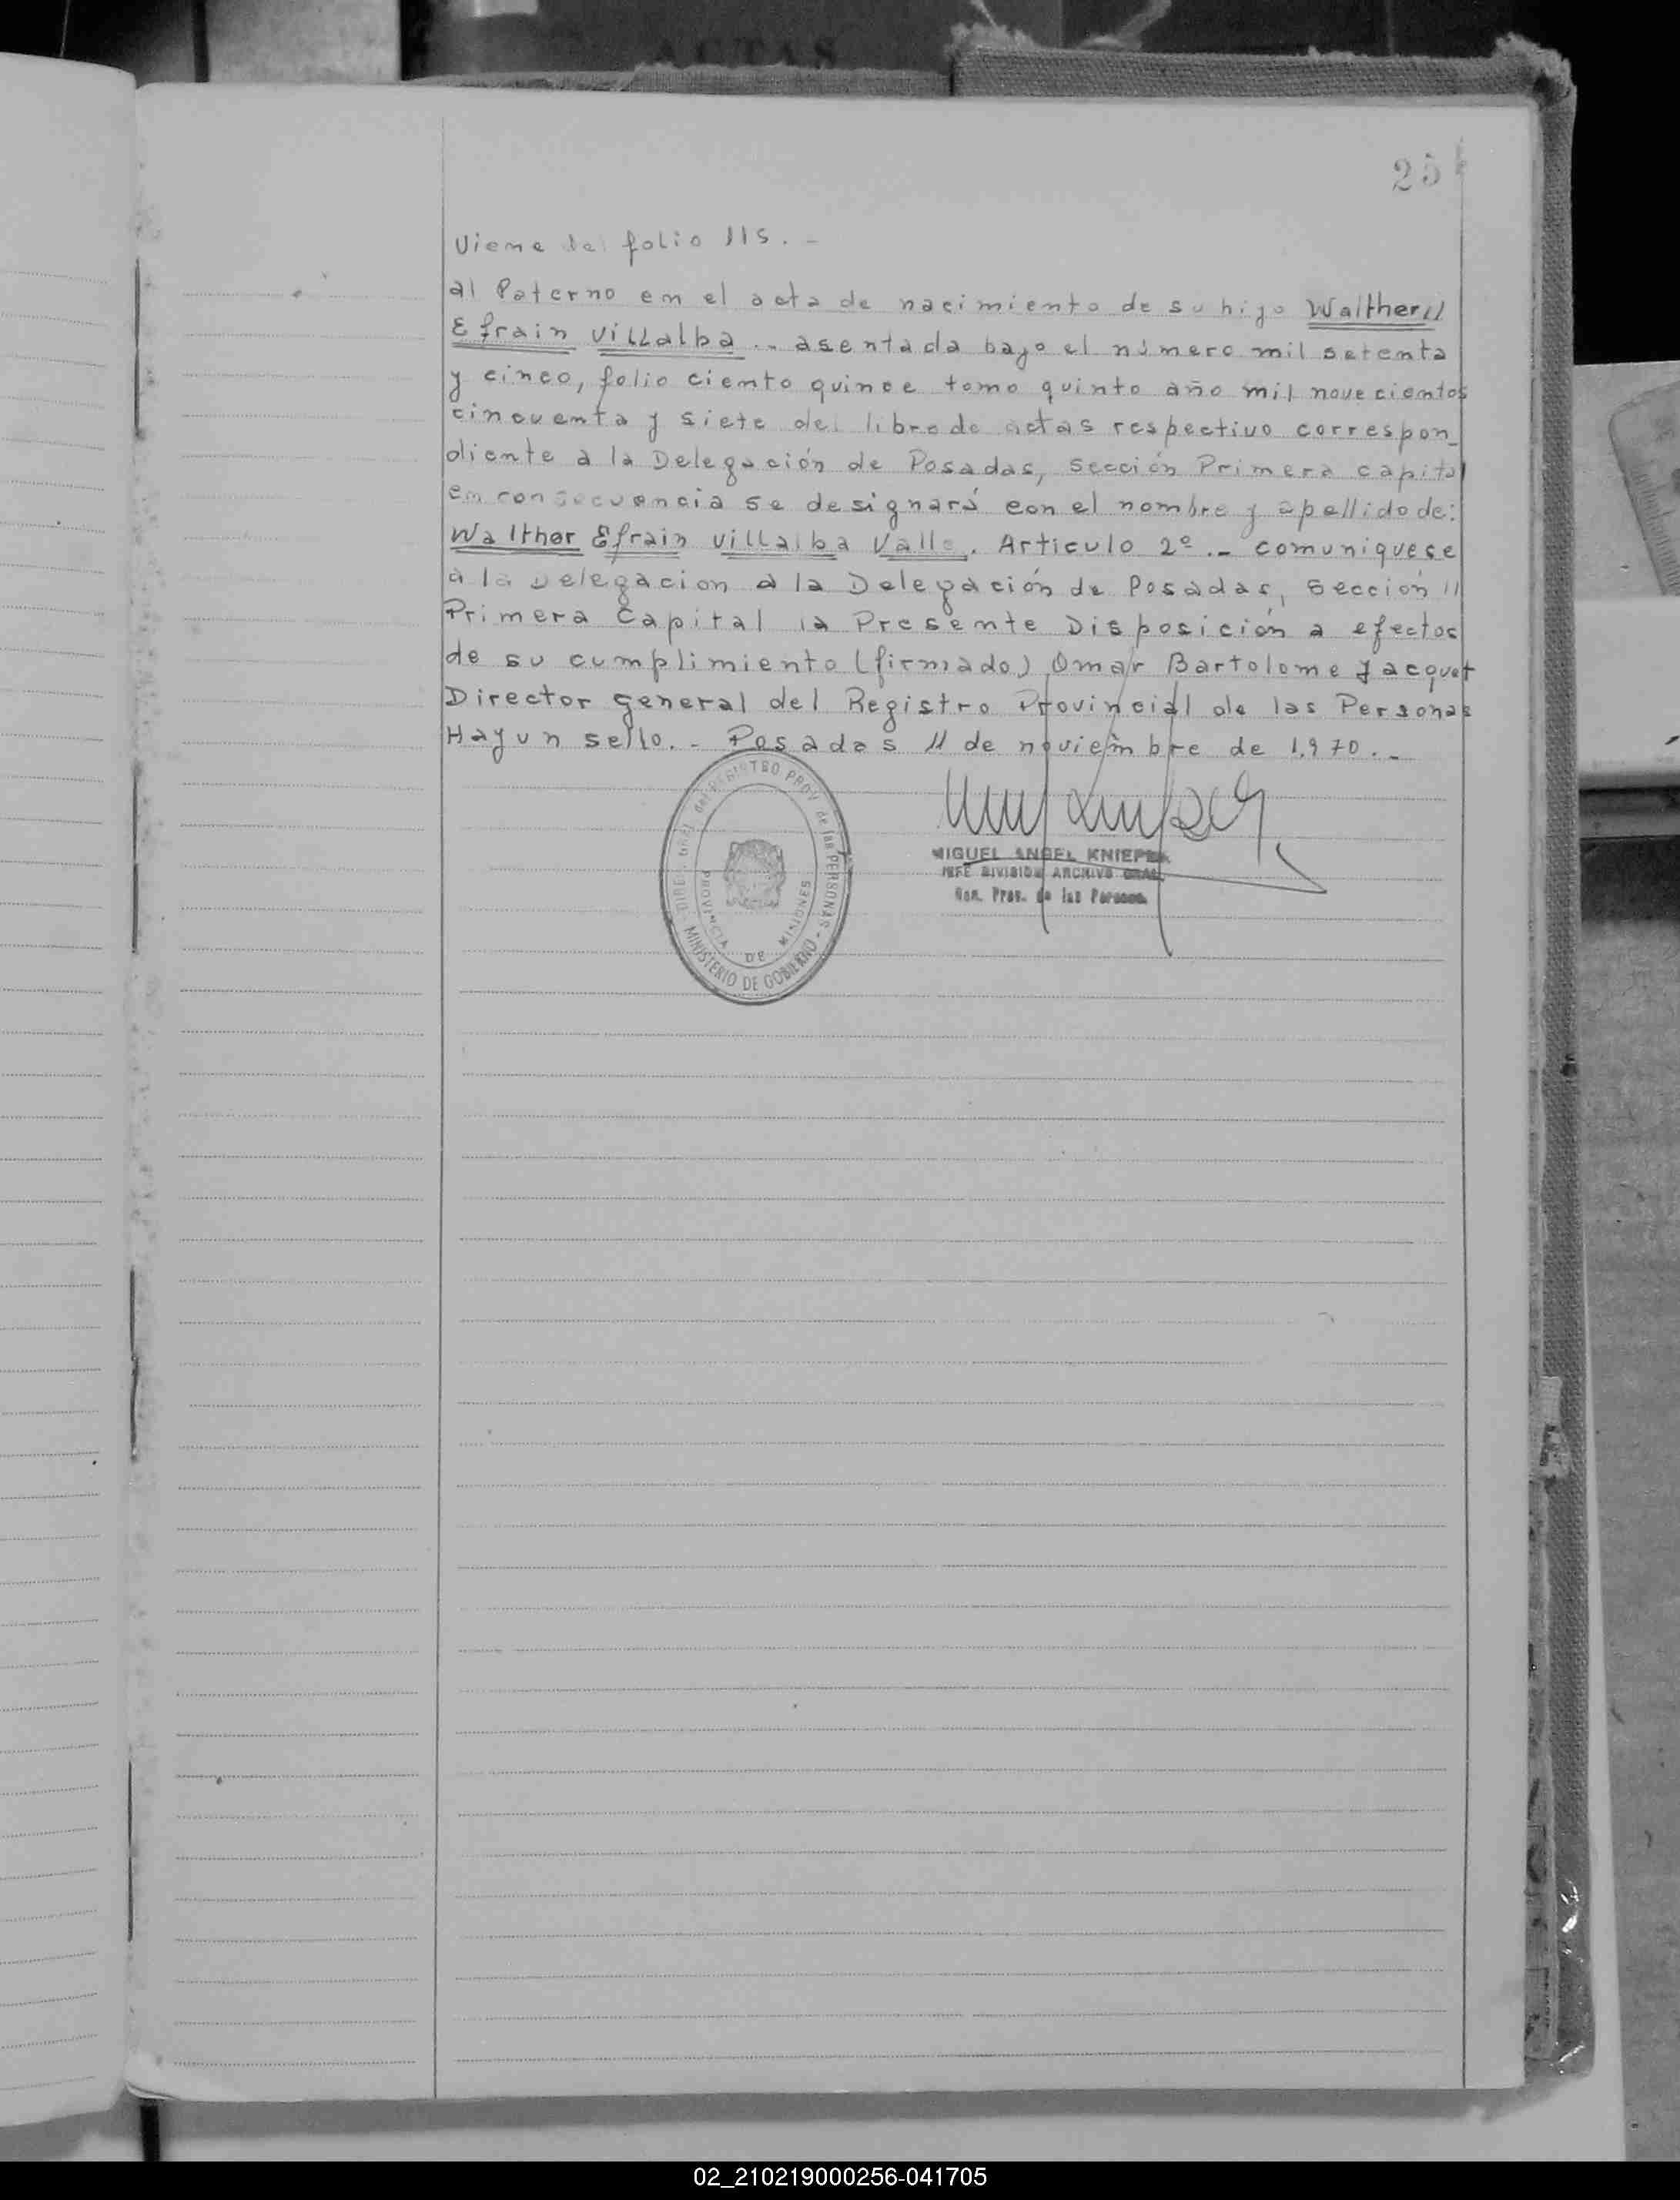 ACTAS
25
Viene del folio 115. -
al Paterno en el acta de nacimiento de su hijo Walther //
Efrain Villalba .- asentada bajo el número mil setenta
y cinco, folio ciento quince tomo quinto año mil novecientos
cincuenta y siete del libro de actas respectivo correspon_
diente a la Delegación de Posadas, Sección Primera capital
en consecuencia se designará con el nombre y apellido de:
Walther Efrain Villalba Valle. Articulo 2º .- comuniquese
a la Delegacion a la Delegación de Posadas, Sección //
Primera Capital la Presente Disposición a efectos
de su cumplimiento (firmado) Omar Bartolome Jacquet
Director general del Registro Provincial de las Personas
Hay un sello. - Posadas 11 de noviembre de 1.970. -
DIRE. Gral. del REGISTRO PROV. de las PERSONAS -
MINISTERIO DE GOBIERNO
PROVINCIA DE MISIONES
MIGUEL ANGEL
JEFE DIVISION ARCHIVO GRAL.
Prov. de las Personas
02_210219000256-041705